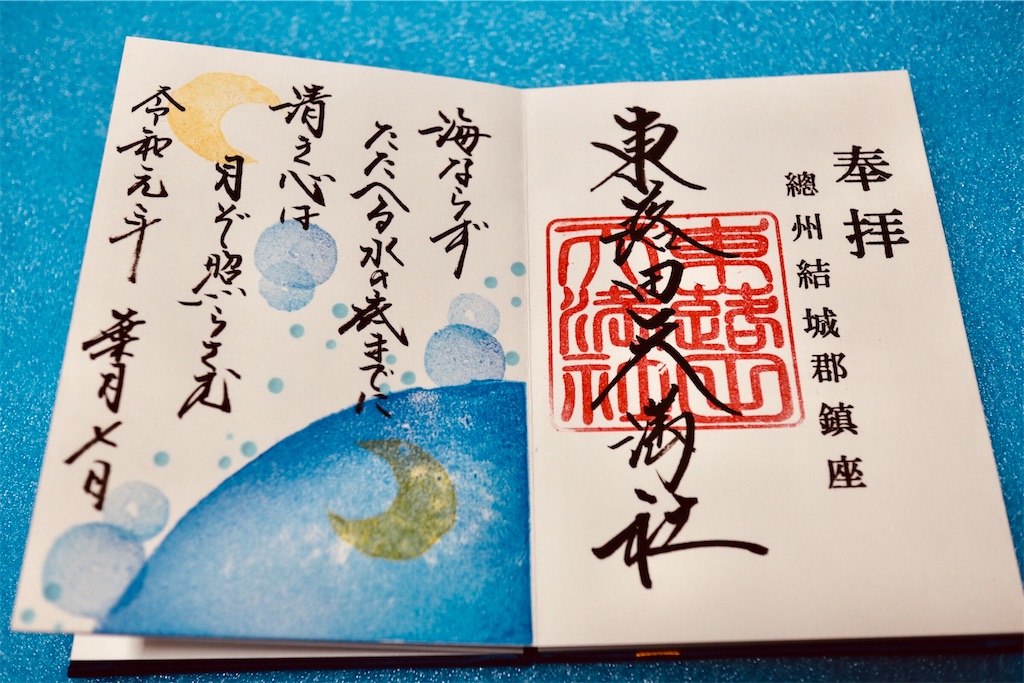 奉拝
總州結城郡鎮座
東蕗田天満社
東蕗田
天満社
海ならず
たたへる水の底までに
清き心は
月ぞ照らさむ
令和元年
葉月七日